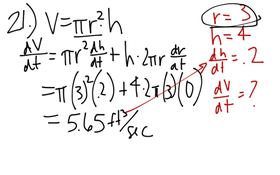 21.) V = πr²h
dV/dt = πr² dh/dt + h·2πr dr/dt
= π(3)²(.2) + 4·2π(3)(0)
= 5.65 ft³/sec
r = 3
h = 4
dh/dt = .2
dV/dt = ?